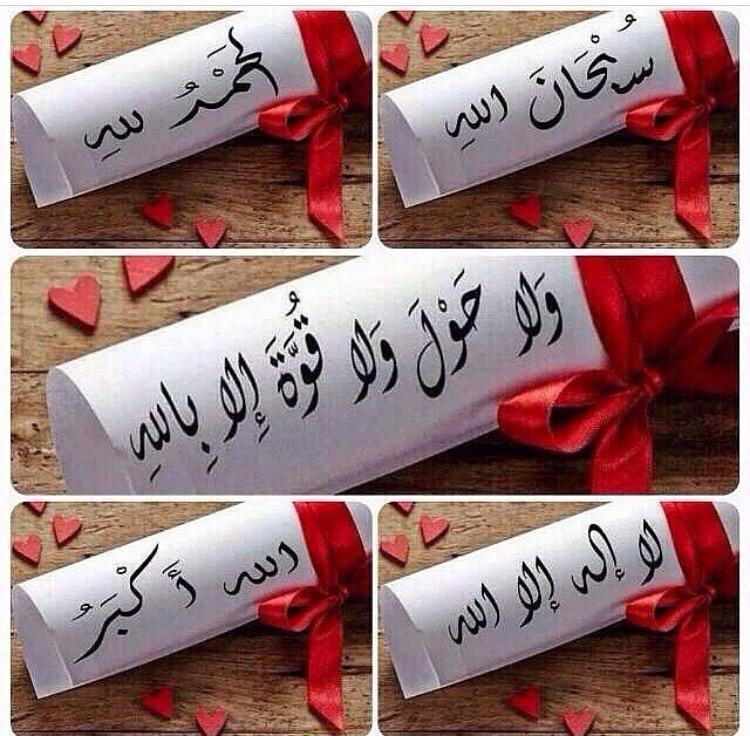 سُبْحَانَ الله
الحَمْدُ للهِ
وَلا حَوْلَ وَلا قُوَّةَ إِلا بِاللهِ
لا إله إلا الله
الله أَكْبَرُ